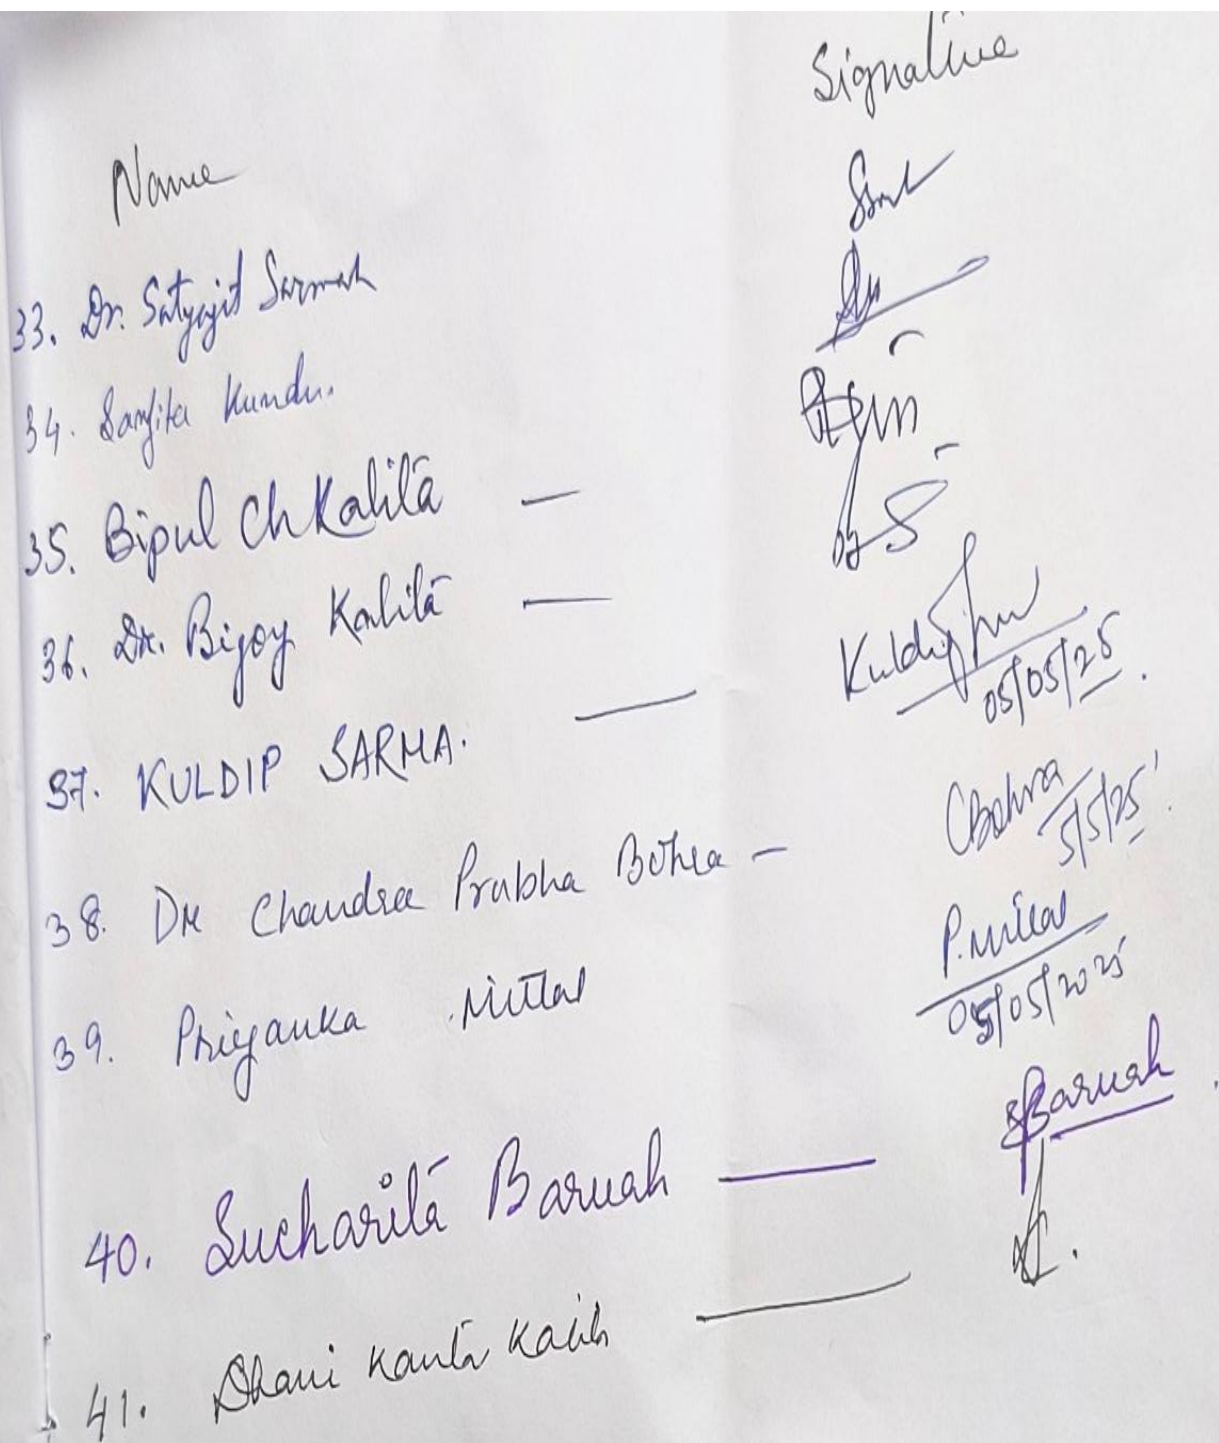 Signature
Name
33. Dr. Satyajit Sarmah
34. Sanjita Kundu.
35. Bipul Ch Kalita —
36. Dr. Bijoy Kalita —
37. KULDIP SARMA. — Kuldip
05/05/25.
38. Dr Chandra Prabha Bohra — CBohra
5/5/25
39. Priyanka Mittal P. Mittal
05/05/2025
40. Sucharita Baruah — SBaruah
41. Dhani Kanta